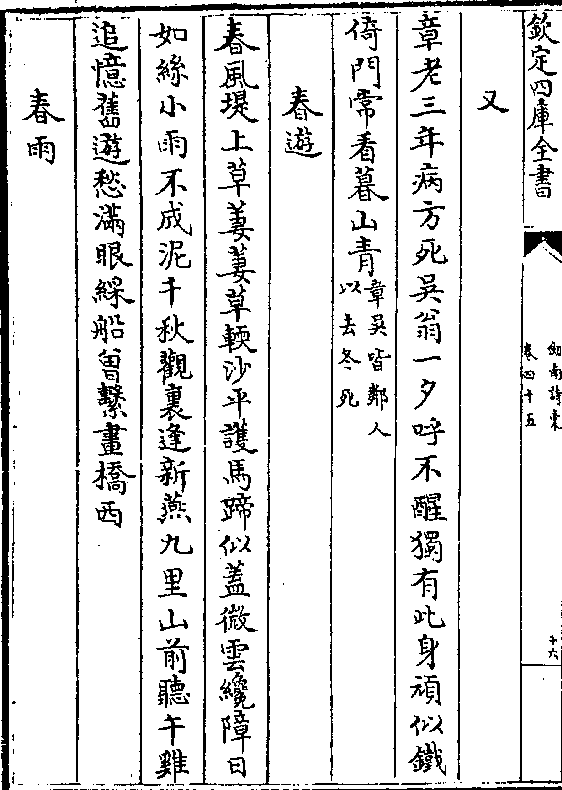 欽定四庫全書
劍南詩稾
卷四十五
十六
又
章老三年病方死吳翁一夕呼不醒獨有此身頑似鐵
倚門常看暮山青章吳皆鄰人
以去冬死
春遊
春風堤上草萋萋草輭沙平護馬蹄似蓋微雲纔障日
如絲小雨不成泥千秋觀裏逢新燕九里山前聽午雞
追憶舊遊愁滿眼綵船曾繫畫橋西
春雨